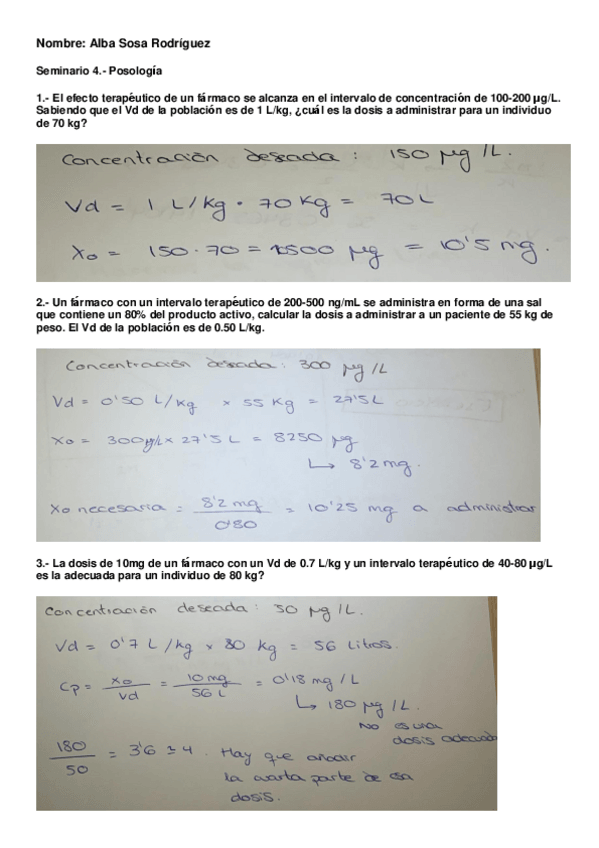 Nombre: Alba Sosa Rodríguez
Seminario 4.- Posología
1.- El efecto terapéutico de un fármaco se alcanza en el intervalo de concentración de 100-200 µg/L.
Sabiendo que el Vd de la población es de 1 L/kg, ¿cuál es la dosis a administrar para un individuo
de 70 kg?
Concentración deseada : 150 µg/L.
Vd = 1 L/kg · 70 kg = 70L
X₀ = 150·70 = 10500 µg = 10'5 mg.
2.- Un fármaco con un intervalo terapéutico de 200-500 ng/mL se administra en forma de una sal
que contiene un 80% del producto activo, calcular la dosis a administrar a un paciente de 55 kg de
peso. El Vd de la población es de 0.50 L/kg.
Concentración deseada : 300 µg/L
Vd = 0'50 L/kg x 55 Kg = 27'5L
X₀ = 300µg/L x 27'5 L = 8250 µg
↳ 8'2 mg.
X₀ necesaria = 8'2 mg / 0'80 = 10'25 mg a administrar
3.- La dosis de 10mg de un fármaco con un Vd de 0.7 L/kg y un intervalo terapéutico de 40-80 µg/L
es la adecuada para un individuo de 80 kg?
Concentración deseada : 50 µg/L.
Vd = 0'7 L/kg x 80 kg = 56 litros.
Cp = X₀ / Vd = 10 mg / 56 L = 0'18 mg/L
↳ 180 µg/L.
No es una
dosis adecuada
180 / 50 = 3'6 ≃ 4 . Hay que añadir
la cuarta parte de esa
dosis.